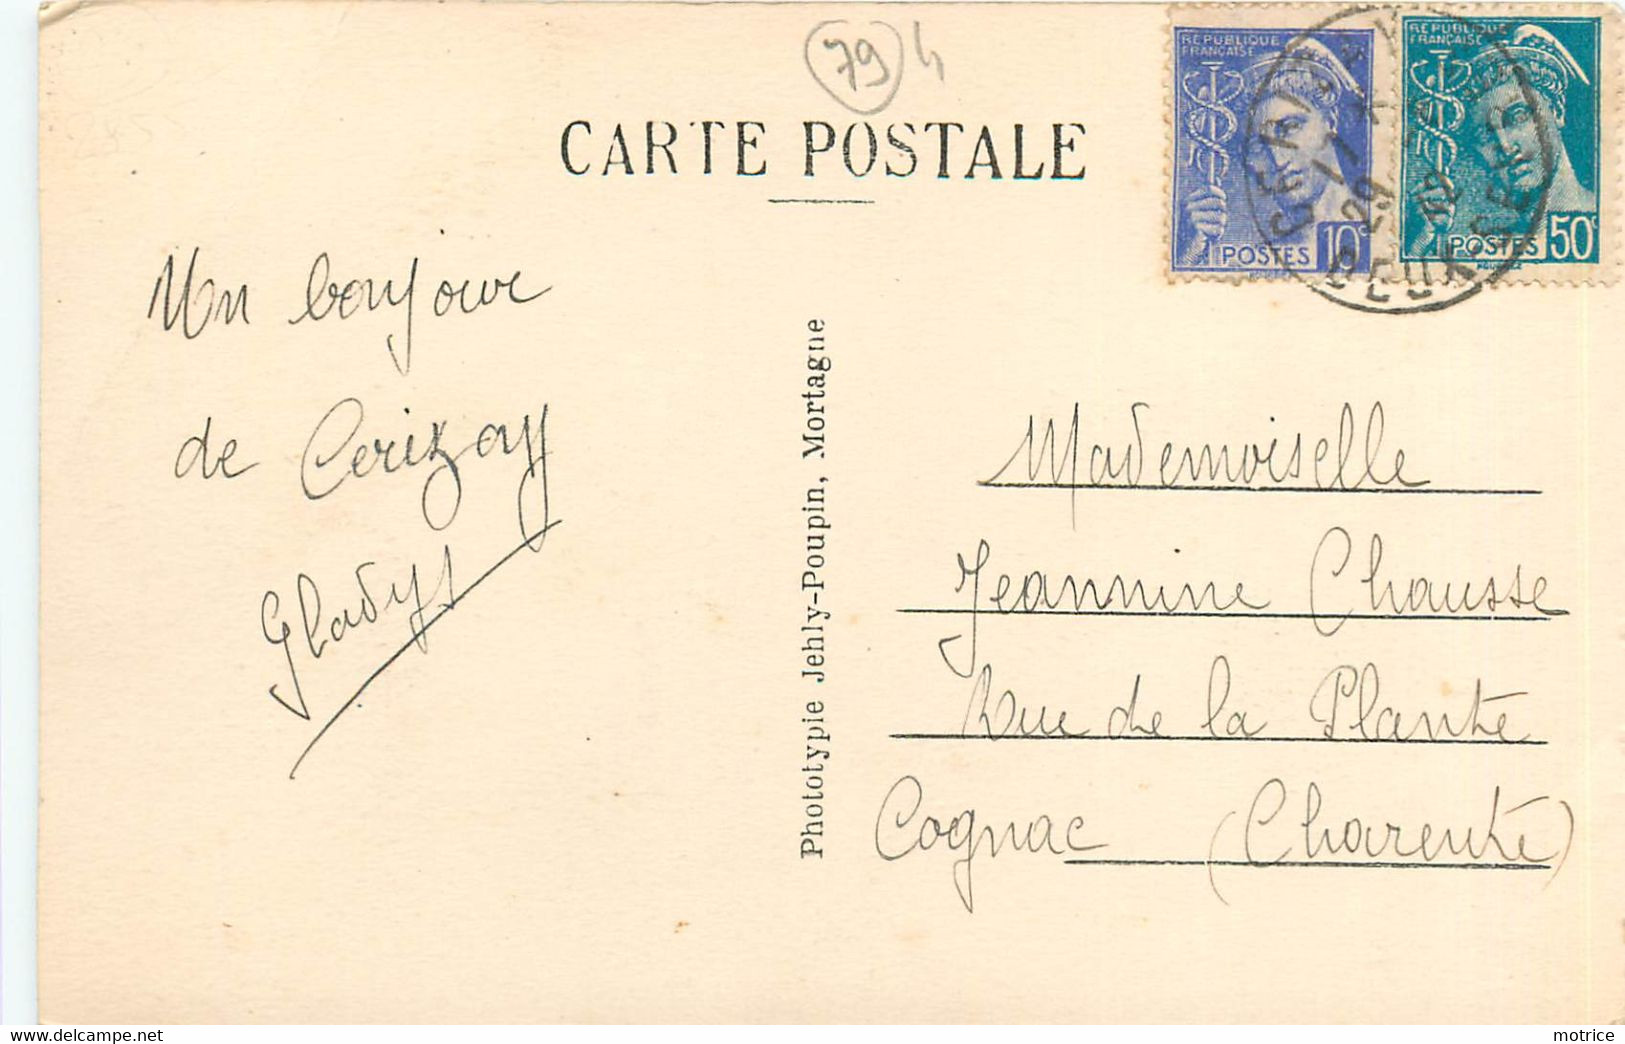 79 4
CARTE POSTALE
REPUBLIQUE
FRANÇAISE
POSTES 10c
REPUBLIQUE
FRANÇAISE
POSTES 50c
DEUX SEVRES
Un bonjour
de Cerizay
Gladys
Phototypie Jehly-Poupin, Mortagne
Mademoiselle
Jeannine Chausse
Rue de la Plante
Cognac (Charente)
motrice